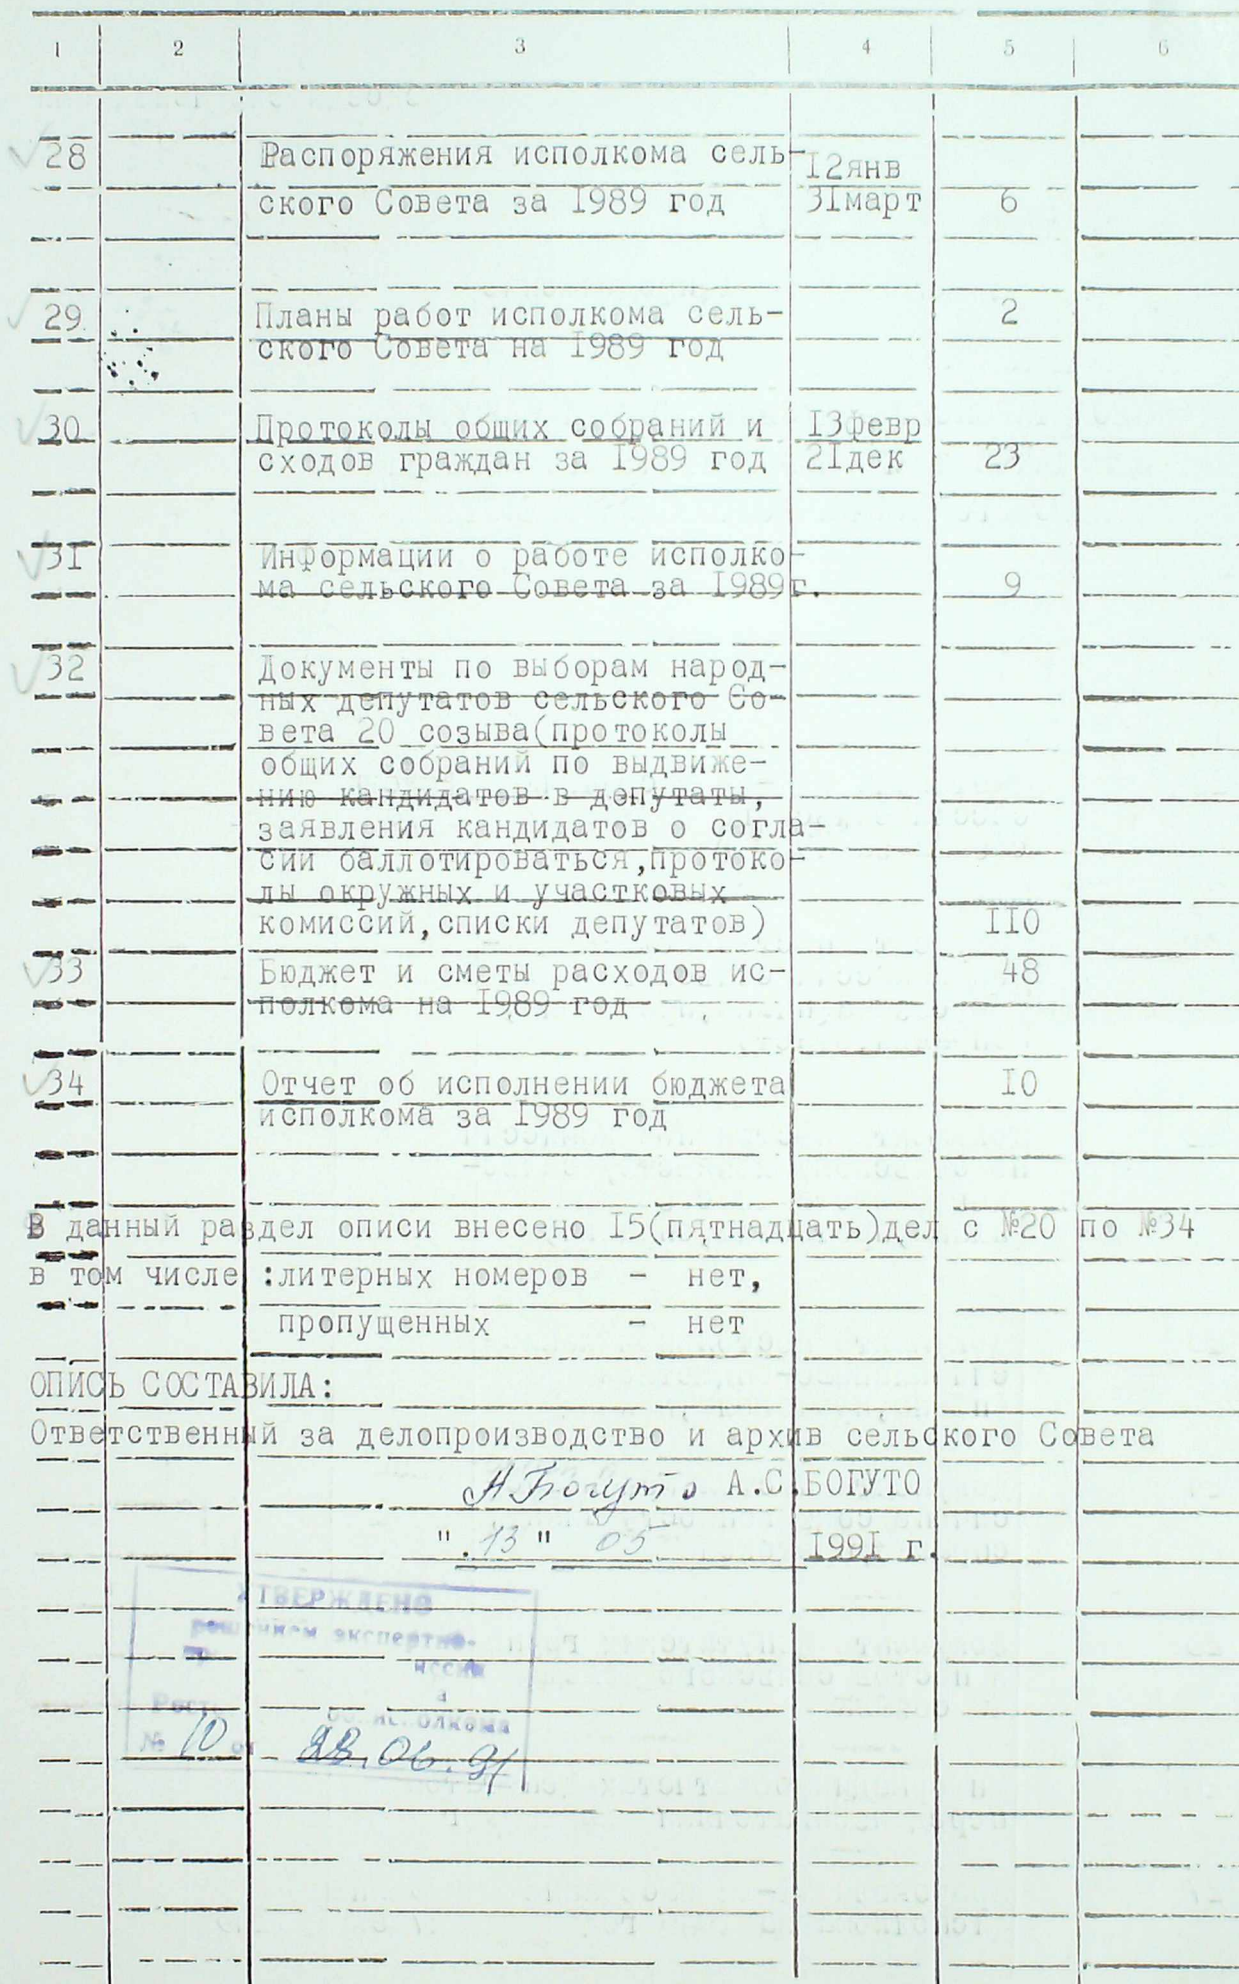 1 2 3 4 5 6
28 Распоряжения исполкома сель- 12янв
ского Совета за 1989 год 31март 6
29. Планы работ исполкома сель- 2
ского Совета на 1989 год
30 Протоколы общих собраний и 13февр
сходов граждан за 1989 год 21дек 23
31 Информации о работе исполко-
ма сельского Совета за 1989г. 9
32 Документы по выборам народ-
ных депутатов сельского Со-
вета 20 созыва(протоколы
общих собраний по выдвиже-
нию кандидатов в депутаты,
заявления кандидатов о согла-
сии баллотироваться,протоко-
лы окружных и участковых
комиссий,списки депутатов) 110
33 Бюджет и сметы расходов ис- 48
полкома на 1989 год
34 Отчет об исполнении бюджета 10
исполкома за 1989 год
В данный раздел описи внесено 15(пятнадцать)дел с №20 по №34
в том числе :литерных номеров - нет,
пропущенных - нет
ОПИСЬ СОСТАВИЛА:
Ответственный за делопроизводство и архив сельского Совета
А.Богуто А.С.БОГУТО
".13" 05 1991 г.
УТВЕРЖДЕНО
решением экспертно-
исполкома
№ 10 от 28.06.91